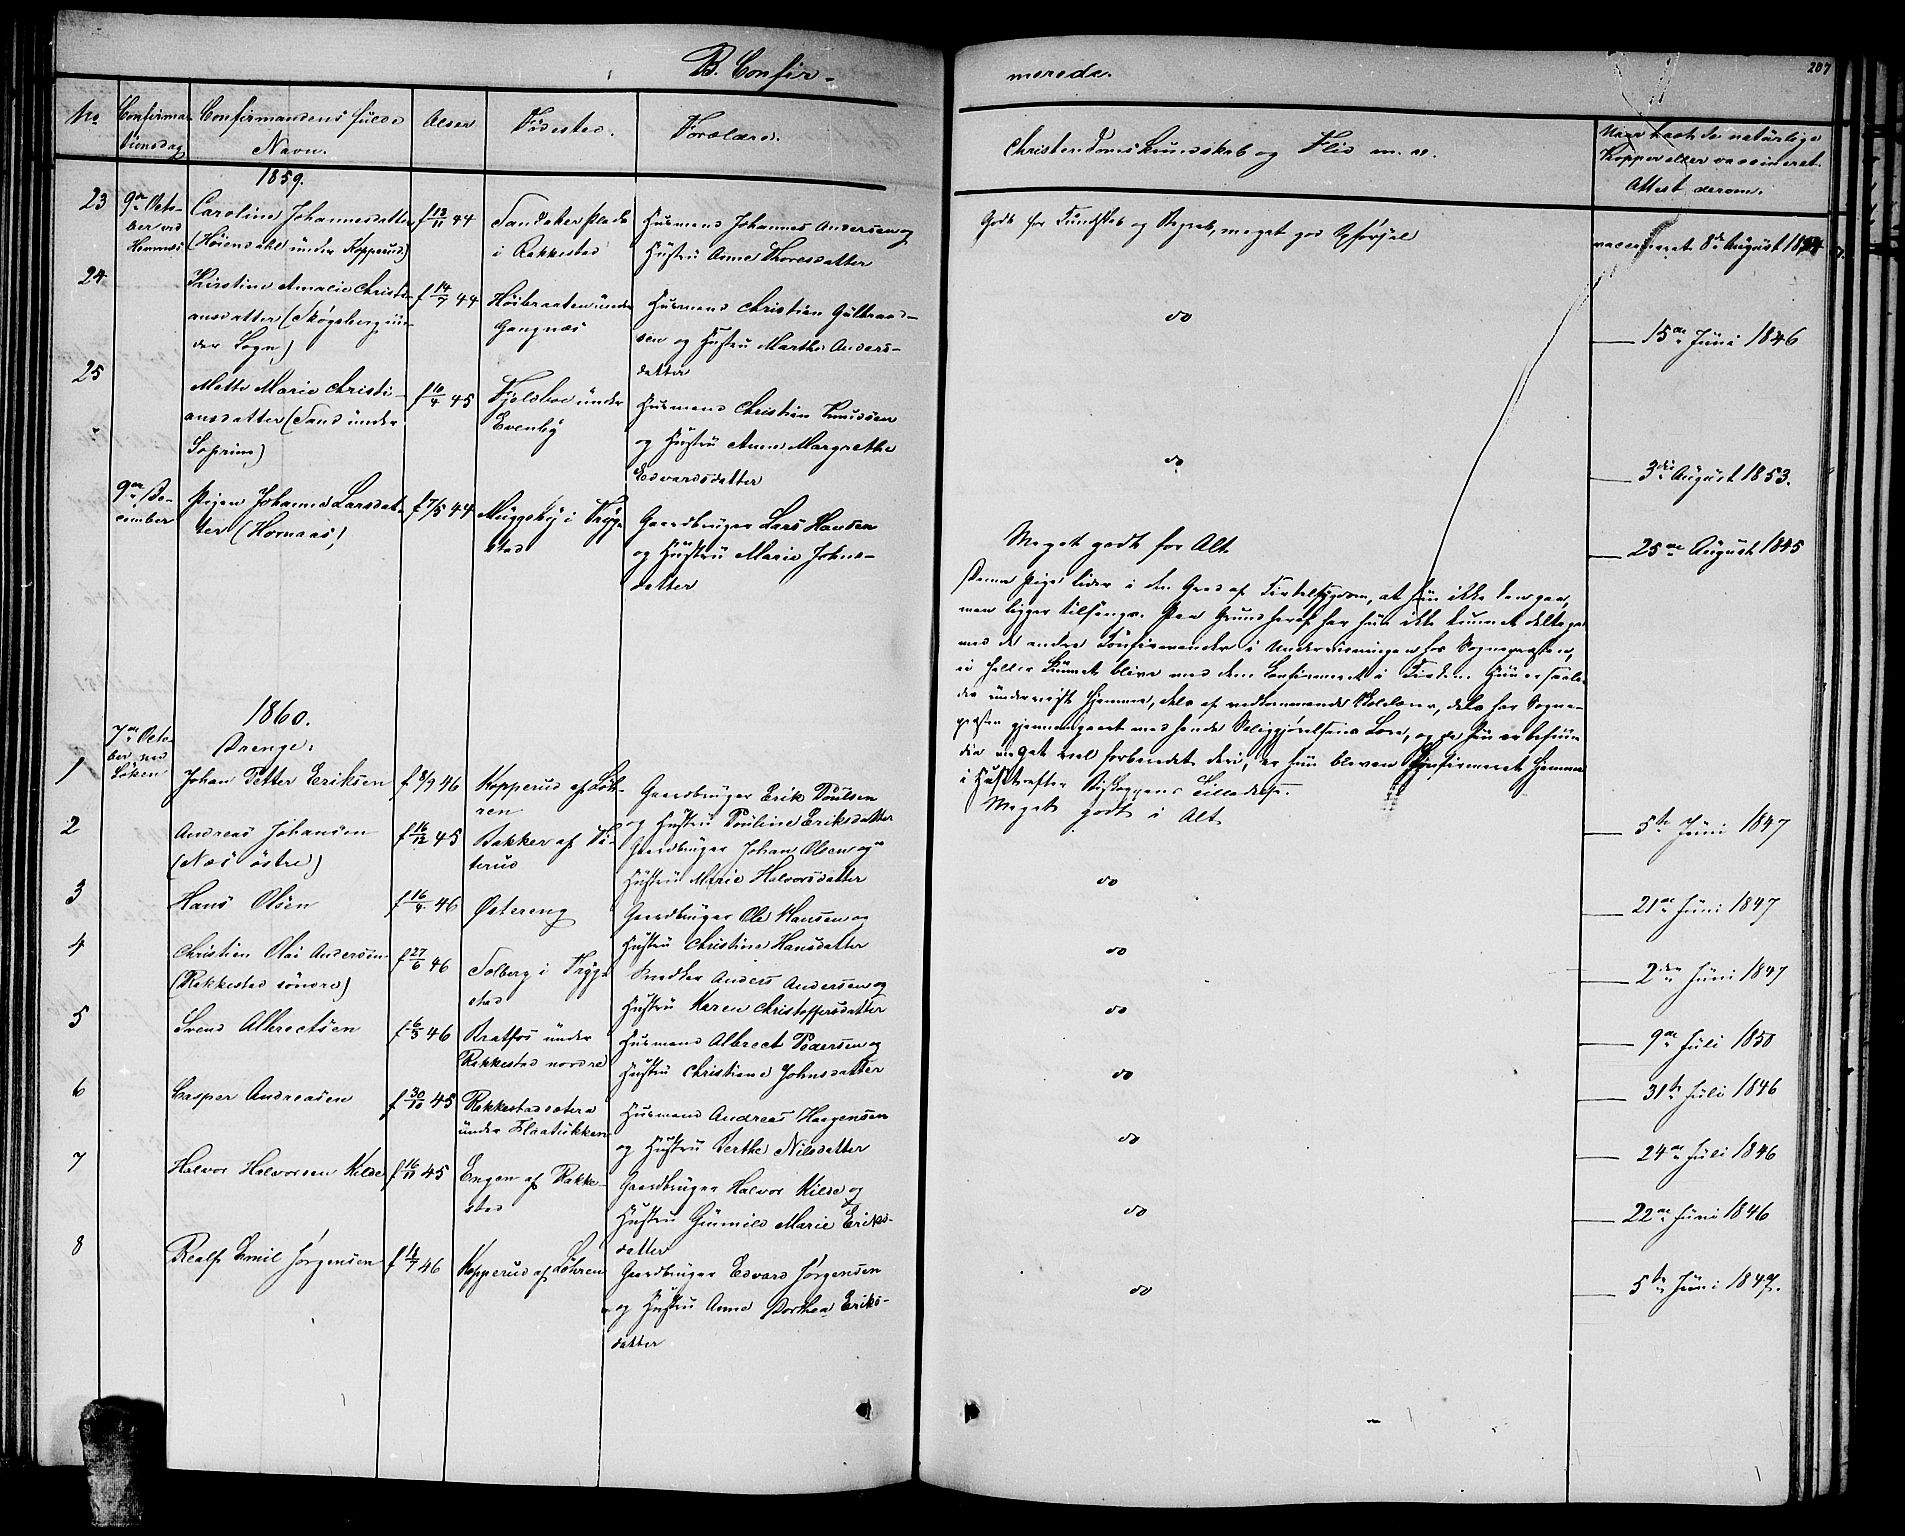 B. Confir-
merede.
207
No
Confirma-
tionsdag
Confirmandens fulde
Navn.
Alder
Fødested.
Forældre.
Christendomskundskab og Flid m. v.
Naar havt de naturlige
Kopper eller vaccineret.
Attest derom.
1859.
23
9de Octo-
ber ved
Hemnæs
Caroline Johannesdatter
(Høiendahl under Kopperud)
f 12/11 44
Sandaker plads
i Rakkestad
Husmand Johannes Andersen og
Hustru Anne Thoresdatter
Godt for Kundskab og Begreb, meget god Opførsel
vaccineret 8de August 1854
24
Kirstine Amalie Christi-
ansdatter (Skøgsberg un-
der Sogn)
f 14/7 44
Høibraaten under
Gangnæs
Husmand Christian Gulbrands-
sen og Hustru Marthe Anders-
datter
do
15de Juni 1846
25
Mette Marie Christi-
ansdatter (Sand under
Soprim)
f 10/4 45
Fjeldboe under
Evenby
Husmand Christian Knudsen
og Hustru Anne Margrethe
Edvardsdatter
do
3die August 1853.
9de De-
cember
Pigen Johanne Larsdat-
ter (Hornaas)
f 7/5 44
Muggeby i Tryg-
stad
Gaardbruger Lars Hansen
og Hustru Marie Johns-
datter
Meget godt for Alt
25de August 1845
Denne Pige lider i den Grad af Kirtelsygdom, at hun ikke kan gaae,
men ligger tilsengs. Paa Grund heraf har hun ikke kunnet deltage
med de andre Confirmander i Underviisningen hos Sognepræsten,
ei heller kunnet blive med dem confirmeret i Kirken. Hun er saale-
des underviist hjemme, dels af vedkommende Skolelærer, dels har Sogne-
præsten gjennemgaaet med hende Saliggjørelsens Lære, og da hun er befun-
den meget vel forberedet deri, er hun bleven Confirmeret hjemme
i Huset efter Biskoppens Tilladelse.
1860.
Drenge.
7de Octo-
ber ved
Løken
1
Johan Petter Eriksen
f 8/9 46
Kopperud af Løk-
ren
Gaardbruger Erik Poulsen
og Hustru Pouline Eriksdatter
Meget godt i Alt
5te Juni 1847
2
Andreas Johansen
(Næs østre)
f 16/12 45
Bakker af Ti-
terud
Gaardbruger Johan Olsen og
Hustru Marie Halvorsdatter
do
21de Juni 1847
3
Hans Olsen
f 16/4 46
Østereng
Gaardbruger Ole Hansen og
Hustru Christine Hansdatter
do
2den Juni 1847
4
Christian Olai Andersen
(Rakkestad søndre)
f 27/6 46
Solberg i Tryg-
stad
Snedker Anders Andersen og
Hustru Karen Christoffersdatter
do
9de Juli 1850
5
Svend Albrectsen
f 6/3 46
Bratfos under
Rakkestad nordre
Husmand Albrect Pedersen og
Hustru Christiane Johnsdatter
do
31te Juli 1846
6
Casper Andreasen
f 30/10 45
Rakkestadsætra
under Flaatukken
Husmand Andreas Haagensen
og Hustru Berthe Nilsdatter
do
24de Juli 1846
7
Halvor Halvorsen Kilde
f 16/11 45
Engen af Rakke-
stad
Gaardbruger Halvor Kilde og
Hustru Gunnild Marie Eriks-
datter
do
22de Juni 1846
8
Realf Emil Jørgensen
f 18/7 46
Kopperud af Løkren
Gaardbruger Edvard Jørgensen
og Hustru Anne Dorthea Eriks-
datter
do
5te Juni 1847.